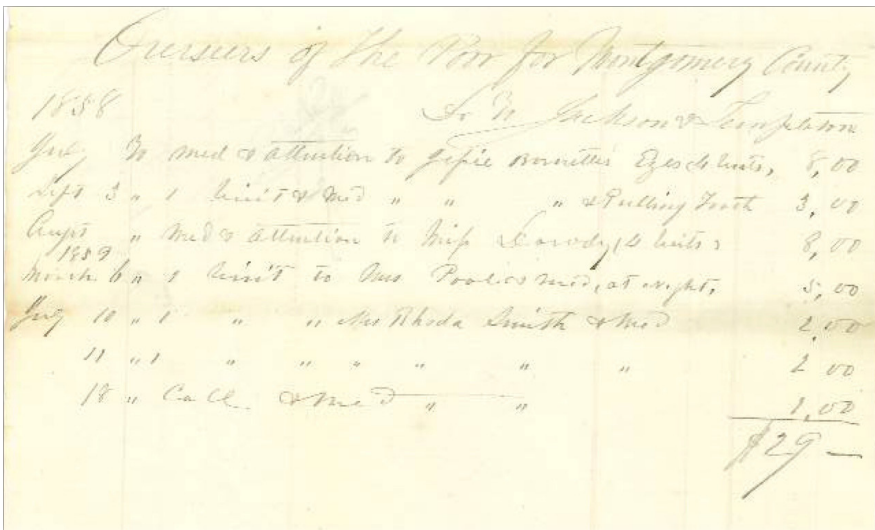 Overseers of The Poor for Montgomery County
1858 To N Jackson & Templeton
July To Med & attention to Jessie Burnettes Eyes 4 visits, 8,00
Sept 3 " 1 visit & Med " " " & Pulling Tooth 3,00
" Med & attention to Miss 4 visits 8,00
1859
March 6 " 1 visit to Mrs Pool & Med, at night, 5,00
July 10 " 1 " " Mrs Rhoda Smith & Med 2,00
11 " 1 " " " " " 2 00
18 " Call & Med " " 1,00
$29 —